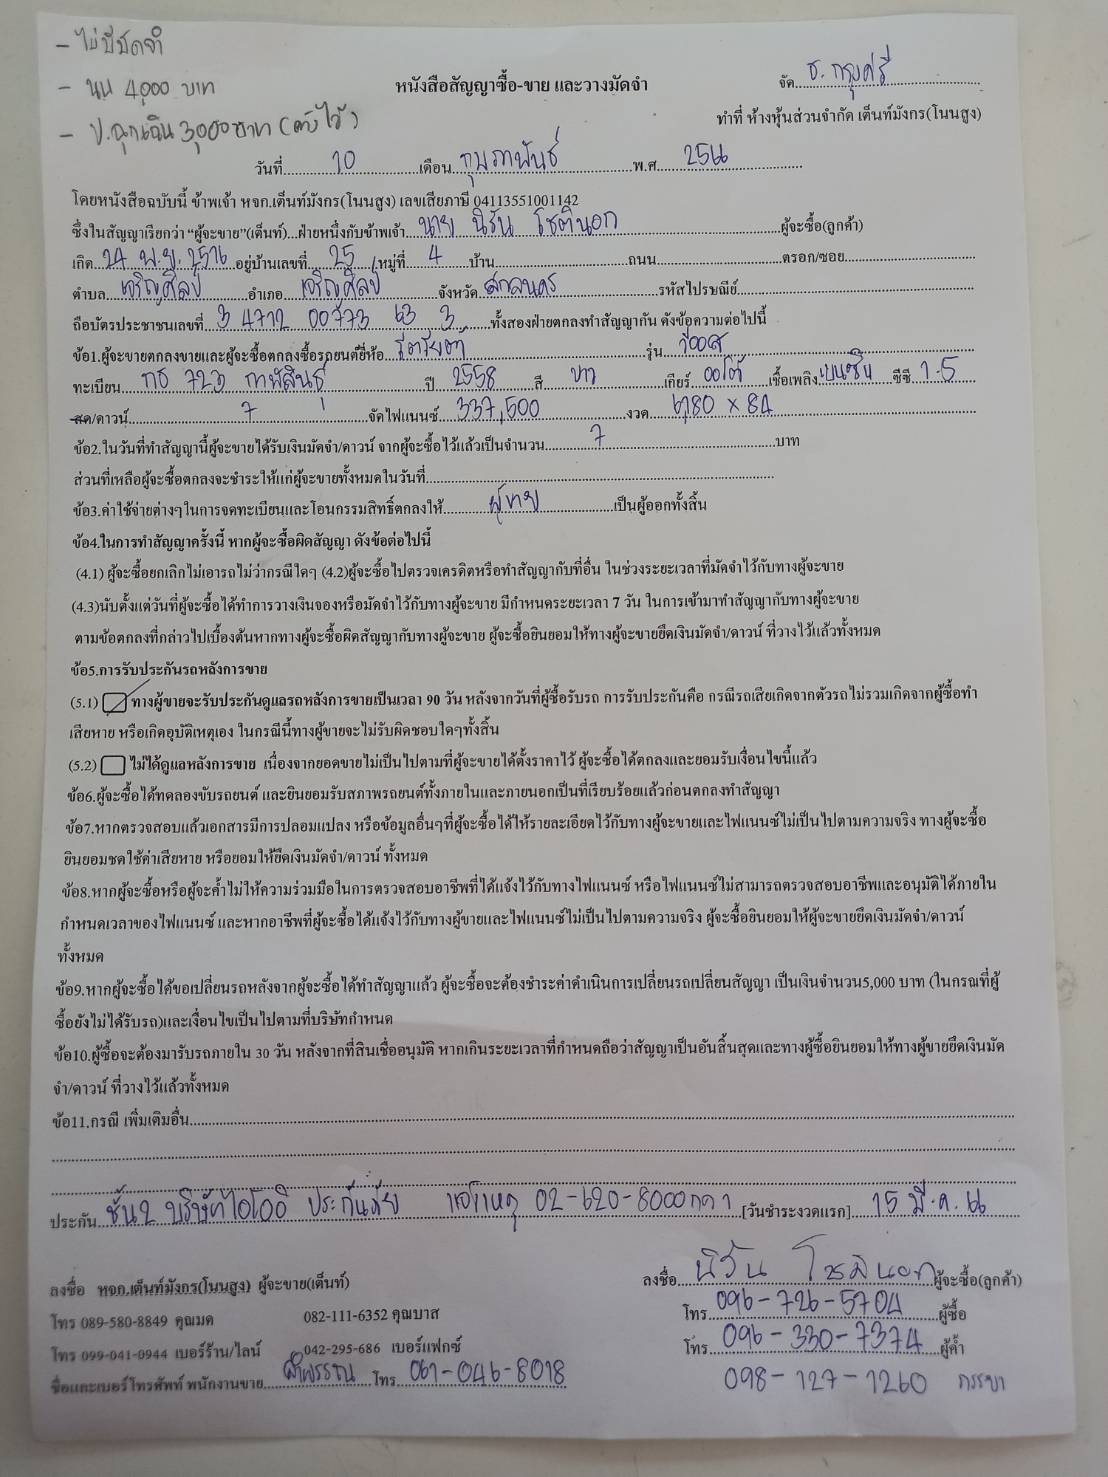 - ไม่มีมัดจำ
- นน 4,000 บาท
- ป.ฉุกเฉิน 3,000 บาท
หนังสือสัญญาซื้อ-ขาย และวางมัดจำ
จัด ธ. กรุงศรี
ทำที่ ห้างหุ้นส่วนจำกัด เต็นท์มังกร(โนนสูง)
วันที่ 10 เดือน กุมภาพันธ์ พ.ศ. 2566
โดยหนังสือฉบับนี้ ข้าพเจ้า หจก.เต็นท์มังกร(โนนสูง) เลขเสียภาษี 04113551001142
ซึ่งในสัญญาเรียกว่า “ผู้จะขาย”(เต็นท์)...ฝ่ายหนึ่งกับข้าพเจ้า นาย นิรัน โชตินอก ผู้จะซื้อ(ลูกค้า)
เกิด 24 พ.ย. 2516 อยู่บ้านเลขที่ 25 หมู่ที่ 4 บ้าน ถนน ตรอก/ซอย
ตำบล เจริญศิลป์ อำเภอ เจริญศิลป์ จังหวัด สกลนคร รหัสไปรษณีย์
ถือบัตรประชาชนเลขที่ 3 4712 00773 63 3 ทั้งสองฝ่ายตกลงทำสัญญากัน ดังข้อความต่อไปนี้
ข้อ1.ผู้จะขายตกลงขายและผู้จะซื้อตกลงซื้อรถยนต์ยี่ห้อ โตโยต้า รุ่น วีออส
ทะเบียน กธ 726 กาฬสินธุ์ ปี 2558 สี ขาว เกียร์ ออโต้ เชื้อเพลิง เบนซิน ซีซี 1.5
สด/ดาวน์ 7 จัดไฟแนนซ์ 337,500 งวด 6,180 x 84
ข้อ2.ในวันที่ทำสัญญานี้ผู้จะขายได้รับเงินมัดจำ/ดาวน์ จากผู้จะซื้อไว้แล้วเป็นจำนวน 7 บาท
ส่วนที่เหลือผู้จะซื้อตกลงจะชำระให้แก่ผู้จะขายทั้งหมดในวันที่
ข้อ3.ค่าใช้จ่ายต่างๆในการจดทะเบียนและโอนกรรมสิทธิ์ตกลงให้ ผู้ขาย เป็นผู้ออกทั้งสิ้น
ข้อ4.ในการทำสัญญาครั้งนี้ หากผู้จะซื้อผิดสัญญา ดังข้อต่อไปนี้
(4.1) ผู้จะซื้อยกเลิกไม่เอารถไม่ว่ากรณีใดๆ (4.2)ผู้จะซื้อไปตรวจเครดิตหรือทำสัญญากับที่อื่น ในช่วงระยะเวลาที่มัดจำไว้กับทางผู้จะขาย
(4.3)นับตั้งแต่วันที่ผู้จะซื้อได้ทำการวางเงินจองหรือมัดจำไว้กับทางผู้จะขาย มีกำหนดระยะเวลา 7 วัน ในการเข้ามาทำสัญญากับทางผู้จะขาย
ตามข้อตกลงที่กล่าวไปเบื้องต้นหากทางผู้จะซื้อผิดสัญญากับทางผู้จะขาย ผู้จะซื้อยินยอมให้ทางผู้จะขายยึดเงินมัดจำ/ดาวน์ ที่วางไว้แล้วทั้งหมด
ข้อ5.การรับประกันรถหลังการขาย
(5.1) ทางผู้ขายจะรับประกันดูแลรถหลังการขายเป็นเวลา 90 วัน หลังจากวันที่ผู้ซื้อรับรถ การรับประกันคือ กรณีรถเสียเกิดจากตัวรถ ไม่รวมเกิดจากผู้ซื้อทำ
เสียหาย หรือเกิดอุบัติเหตุเอง ในกรณีนี้ทางผู้ขายจะไม่รับผิดชอบใดๆทั้งสิ้น
(5.2) ไม่ได้ดูแลหลังการขาย เนื่องจากยอดขายไม่เป็นไปตามที่ผู้จะขายได้ตั้งราคาไว้ ผู้จะซื้อได้ตกลงและยอมรับเงื่อนไขนี้แล้ว
ข้อ6.ผู้จะซื้อได้ทดลองขับรถยนต์ และยินยอมรับสภาพรถยนต์ทั้งภายในและภายนอกเป็นที่เรียบร้อยแล้วก่อนตกลงทำสัญญา
ข้อ7.หากตรวจสอบแล้วเอกสารมีการปลอมแปลง หรือข้อมูลอื่นๆที่ผู้จะซื้อได้ให้รายละเอียดไว้กับทางผู้จะขายและไฟแนนซ์ไม่เป็นไปตามความจริง ทางผู้จะซื้อ
ยินยอมชดใช้ค่าเสียหาย หรือยอมให้ยึดเงินมัดจำ/ดาวน์ ทั้งหมด
ข้อ8.หากผู้จะซื้อหรือผู้จะค้ำไม่ให้ความร่วมมือในการตรวจสอบอาชีพที่ได้แจ้งไว้กับทางไฟแนนซ์ หรือไฟแนนซ์ไม่สามารถตรวจสอบอาชีพและอนุมัติได้ภายใน
กำหนดเวลาของไฟแนนซ์ และหากอาชีพที่ผู้จะซื้อได้แจ้งไว้กับทางผู้ขายและไฟแนนซ์ไม่เป็นไปตามความจริง ผู้จะซื้อยินยอมให้ผู้จะขายยึดเงินมัดจำ/ดาวน์
ทั้งหมด
ข้อ9.หากผู้จะซื้อได้ขอเปลี่ยนรถหลังจากผู้จะซื้อได้ทำสัญญาแล้ว ผู้จะซื้อจะต้องชำระค่าดำเนินการเปลี่ยนรถเปลี่ยนสัญญา เป็นเงินจำนวน5,000 บาท (ในกรณที่ผู้
ซื้อยังไม่ได้รับรถ)และเงื่อนไขเป็นไปตามที่บริษัทกำหนด
ข้อ10.ผู้ซื้อจะต้องมารับรถภายใน 30 วัน หลังจากที่สินเชื่ออนุมัติ หากเกินระยะเวลาที่กำหนดถือว่าสัญญาเป็นอันสิ้นสุดและทางผู้ซื้อยินยอมให้ทางผู้ขายยึดเงินมัด
จำ/ดาวน์ ที่วางไว้แล้วทั้งหมด
ข้อ11.กรณี เพิ่มเติมอื่น
ประกัน ชั้น 2 บริษัทไอโออิ ประกันภัย แจ้งเหตุ 02-620-8000 กด 1 [วันชำระงวดแรก] 15 มี.ค. 66
ลงชื่อ หจก.เต็นท์มังกร(โนนสูง) ผู้จะขาย(เต็นท์)
ลงชื่อ นิรัน โชตินอก ผู้จะซื้อ(ลูกค้า)
โทร 089-580-8849 คุณมด 082-111-6352 คุณบาส
โทร 096-726-5704 ผู้ซื้อ
โทร 099-041-0944 เบอร์ร้าน/ไลน์ 042-295-686 เบอร์แฟกซ์
โทร 096-330-7374 ผู้ค้ำ
ชื่อและเบอร์โทรศัพท์ พนักงานขาย โทร 061-046-8018
098-127-1260 ภรรยา